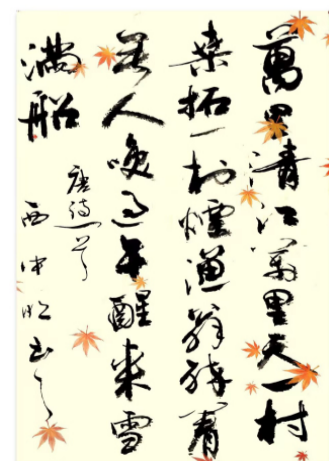 萬里清江萬里天一村
桑柘一村煙漁翁醉著
無人喚過午醒來雪
滿船
唐詩一首